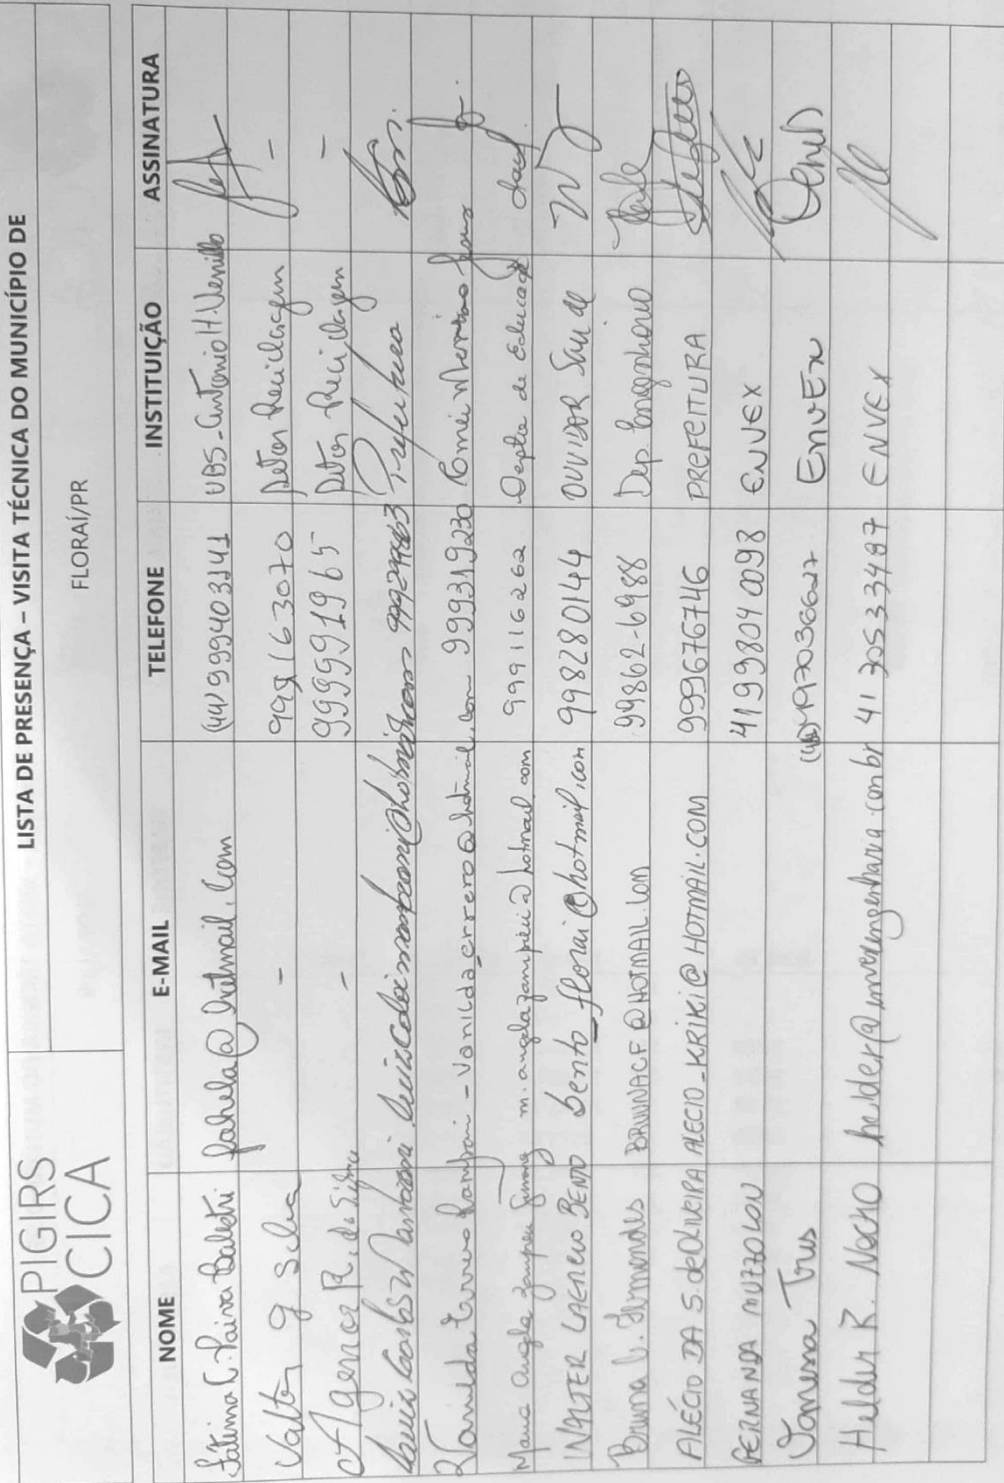 PIGIRS
CICA
LISTA DE PRESENÇA – VISITA TÉCNICA DO MUNICÍPIO DE
FLORAÍ/PR
NOME E-MAIL TELEFONE INSTITUIÇÃO ASSINATURA
Fatima C. Paiva Balestri fahela@hotmail.com (44) 999403141 UBS-Antonio H.
Valter J Silva - 998163070 Setor Reciclagem -
Agenor R. da Silva - 999991965 Setor Reciclagem -
Luiz Carlos 999279863 Prefeitura
Vanilda Correro - vanildacorrero@hotmail.com 999319230 Cmei Menino Jesus
Maria Angela Zamperi m.angelazamperi@hotmail.com 999116262 Depto de Educação
WALTER LAERCIO BENTO bento_florai@hotmail.com 998280144 OUVIDOR Saude
Bruna C. Fernandes BRUNACF@HOTMAIL.COM 99862-6988 Dep. Engenharia
ALÉCIO DA S. de OLIVEIRA ALECIO_KRIKI@HOTMAIL.COM 999676746 PREFEITURA
FERNANDA MUZZOLON 41 99804 0098 ENVEX
Vanessa EnvEx
Helder R. Nocko helder@envexengenharia.com.br 41 30533487 ENVEX